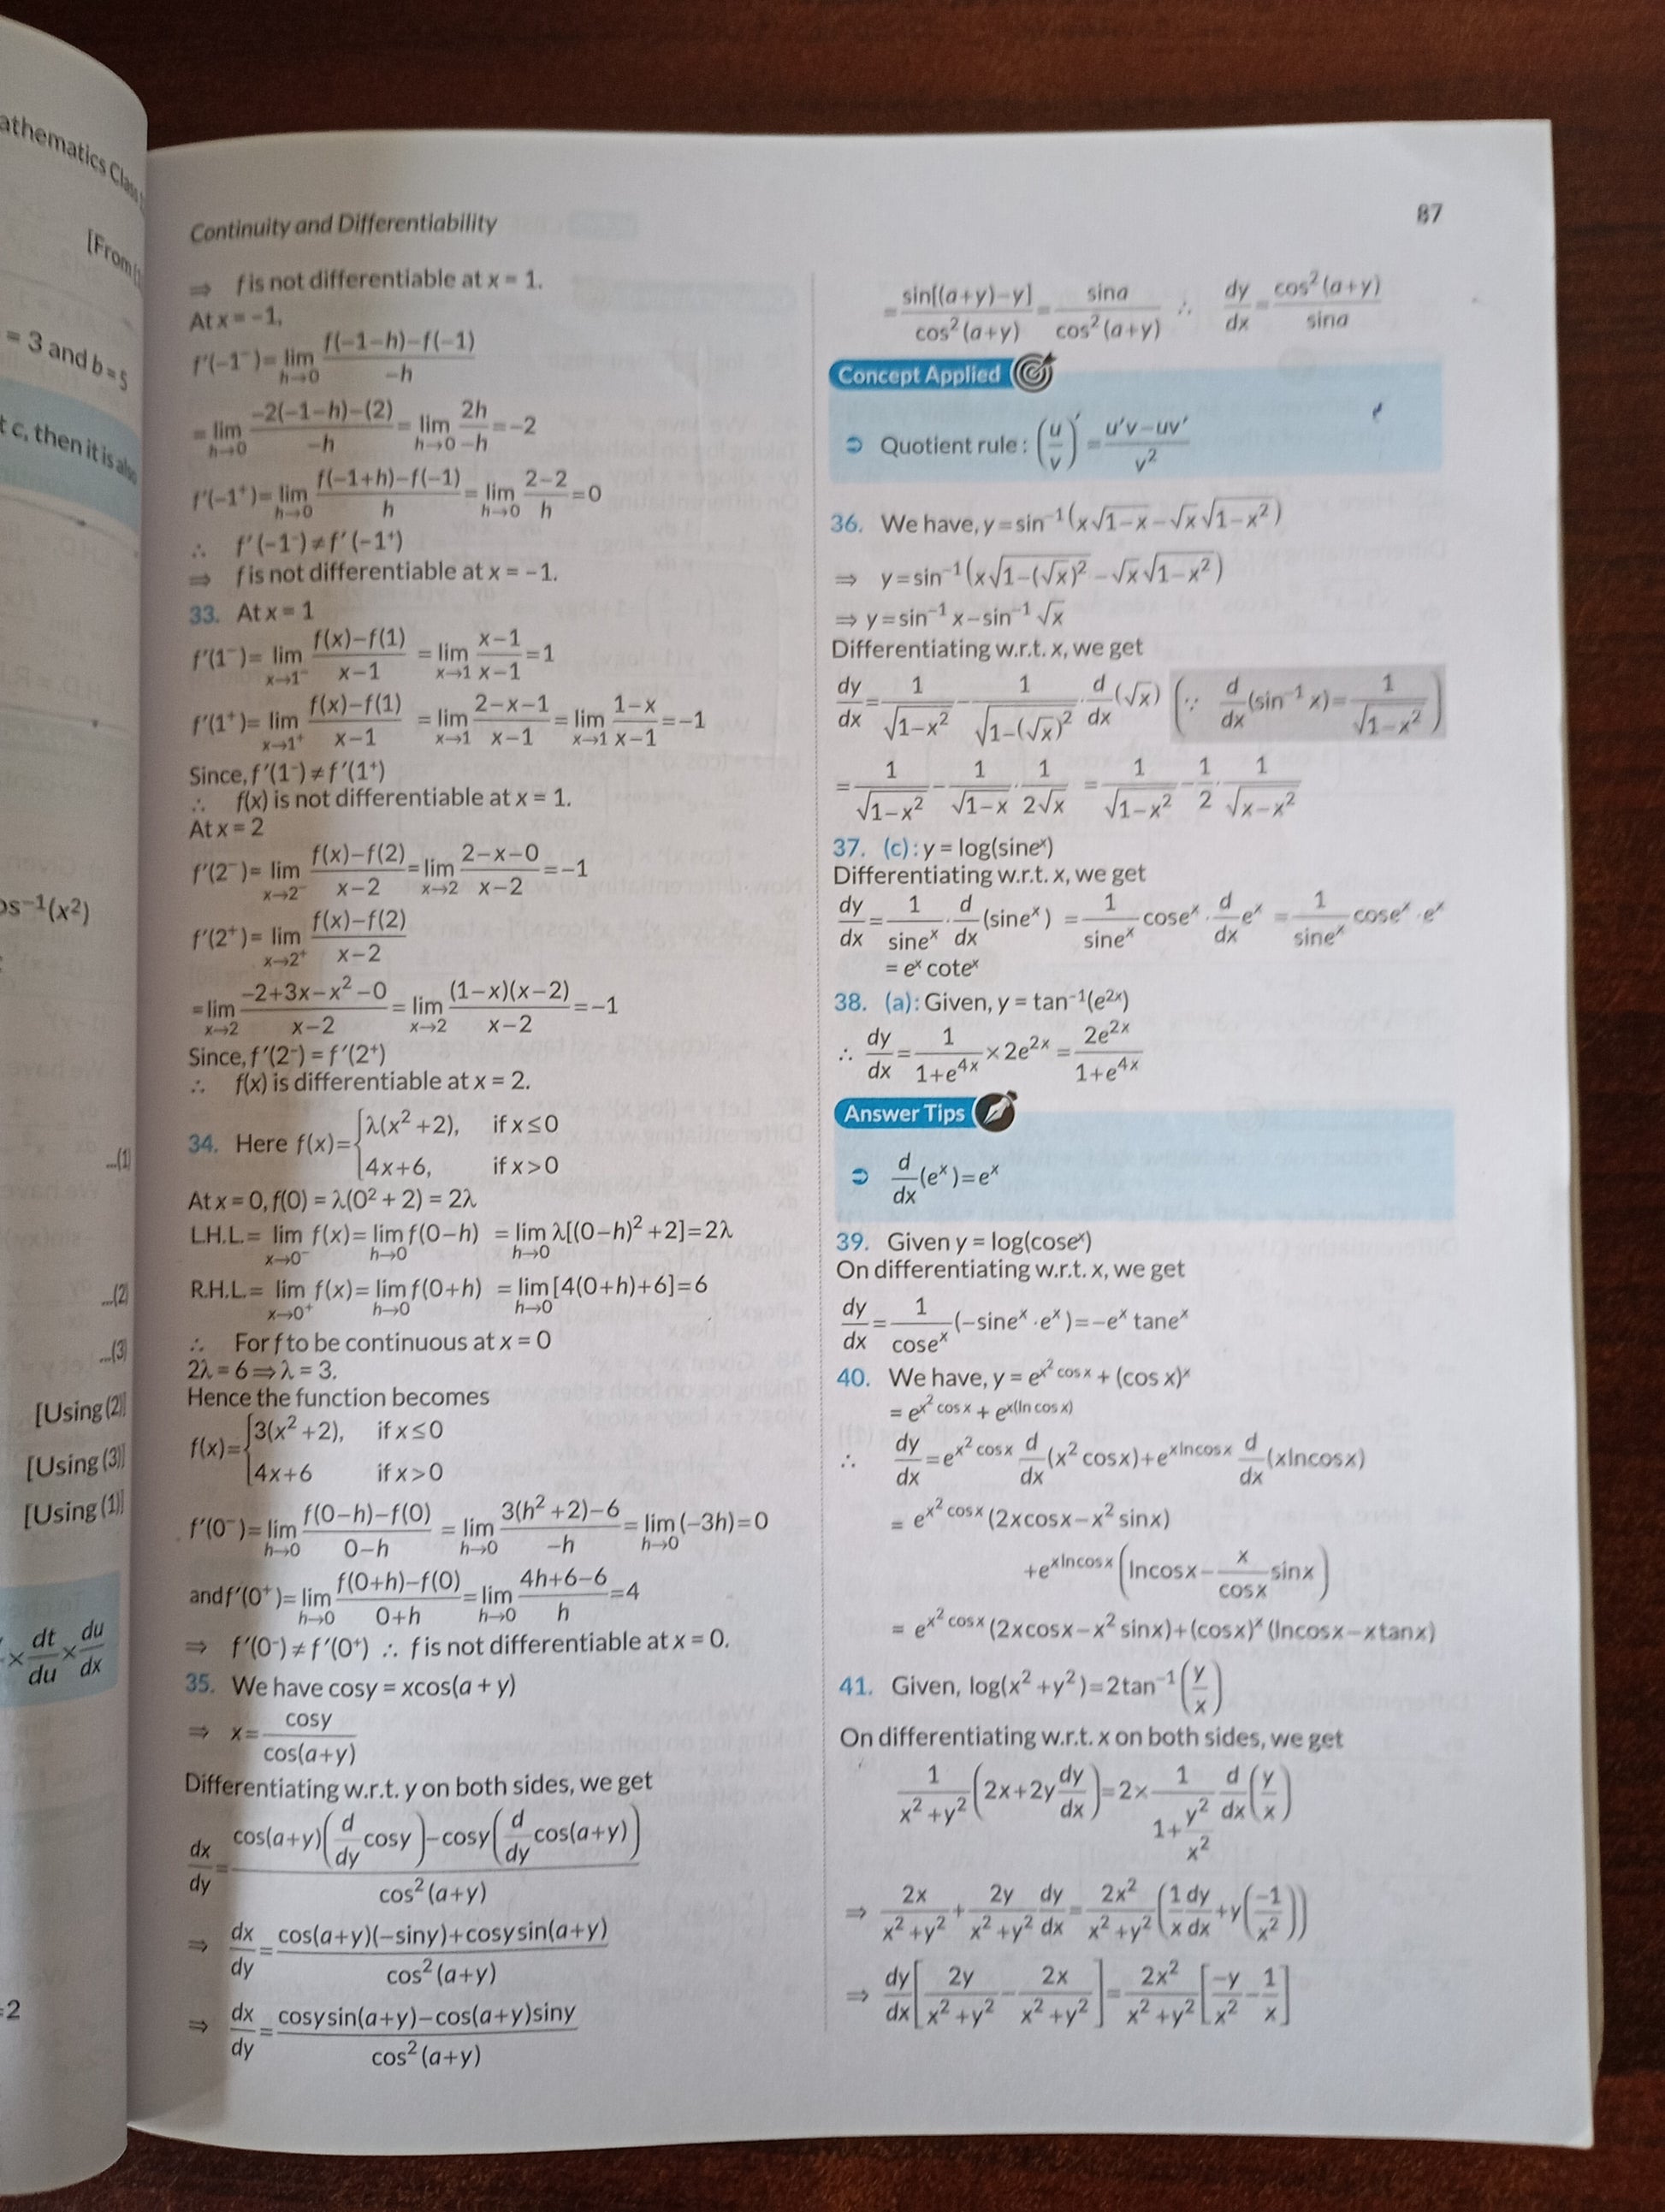 athematics Class
[From
= 3 and b = 5
t c, then it is also
os⁻¹(x²)
...(1)
...(2)
...(3)
[Using (2)]
[Using (3)]
[Using (1)]
× dt/du × du/dx
=2
Continuity and Differentiability
87
⇒ f is not differentiable at x = 1.
At x = −1,
f′(−1⁻)= lim h→0 (f(−1−h)−f(−1))/(−h)
= lim h→0 (−2(−1−h)−(2))/(−h) = lim h→0 2h/(−h) = −2
f′(−1⁺)= lim h→0 (f(−1+h)−f(−1))/h = lim h→0 (2−2)/h = 0
∴ f′(−1⁻) ≠ f′(−1⁺)
⇒ f is not differentiable at x = −1.
33. At x = 1
f′(1⁻)= lim x→1⁻ (f(x)−f(1))/(x−1) = lim x→1 (x−1)/(x−1) = 1
f′(1⁺)= lim x→1⁺ (f(x)−f(1))/(x−1) = lim x→1 (2−x−1)/(x−1) = lim x→1 (1−x)/(x−1) = −1
Since, f′(1⁻) ≠ f′(1⁺)
∴ f(x) is not differentiable at x = 1.
At x = 2
f′(2⁻)= lim x→2⁻ (f(x)−f(2))/(x−2) = lim x→2 (2−x−0)/(x−2) = −1
f′(2⁺)= lim x→2⁺ (f(x)−f(2))/(x−2)
= lim x→2 (−2+3x−x²−0)/(x−2) = lim x→2 ((1−x)(x−2))/(x−2) = −1
Since, f′(2⁻) = f′(2⁺)
∴ f(x) is differentiable at x = 2.
34. Here f(x)= { λ(x²+2), if x ≤ 0
4x+6, if x > 0
At x = 0, f(0) = λ(0² + 2) = 2λ
L.H.L. = lim x→0⁻ f(x) = lim h→0 f(0−h) = lim h→0 λ[(0−h)²+2] = 2λ
R.H.L. = lim x→0⁺ f(x) = lim h→0 f(0+h) = lim h→0 [4(0+h)+6] = 6
∴ For f to be continuous at x = 0
2λ = 6 ⇒ λ = 3.
Hence the function becomes
f(x)= { 3(x²+2), if x ≤ 0
4x+6 if x > 0
f′(0⁻)= lim h→0 (f(0−h)−f(0))/(0−h) = lim h→0 (3(h²+2)−6)/(−h) = lim h→0 (−3h) = 0
and f′(0⁺)= lim h→0 (f(0+h)−f(0))/(0+h) = lim h→0 (4h+6−6)/h = 4
⇒ f′(0⁻) ≠ f′(0⁺) ∴ f is not differentiable at x = 0.
35. We have cosy = xcos(a + y)
⇒ x = cosy/cos(a+y)
Differentiating w.r.t. y on both sides, we get
dx/dy = (cos(a+y)(d/dy cosy)−cosy(d/dy cos(a+y)))/cos²(a+y)
⇒ dx/dy = (cos(a+y)(−siny)+cosysin(a+y))/cos²(a+y)
⇒ dx/dy = (cosysin(a+y)−cos(a+y)siny)/cos²(a+y)
= sin[(a+y)−y]/cos²(a+y) = sina/cos²(a+y) ∴ dy/dx = cos²(a+y)/sina
Concept Applied
➲ Quotient rule : (u/v)′ = (u′v−uv′)/v²
36. We have, y = sin⁻¹(x√(1−x) − √x√(1−x²))
⇒ y = sin⁻¹(x√(1−(√x)²) − √x√(1−x²))
⇒ y = sin⁻¹ x − sin⁻¹ √x
Differentiating w.r.t. x, we get
dy/dx = 1/√(1−x²) − 1/√(1−(√x)²) · d/dx(√x) (∵ d/dx(sin⁻¹ x) = 1/√(1−x²))
= 1/√(1−x²) − 1/√(1−x) · 1/(2√x) = 1/√(1−x²) − 1/2 · 1/√(x−x²)
37. (c) : y = log(sineˣ)
Differentiating w.r.t. x, we get
dy/dx = 1/sineˣ · d/dx(sineˣ) = 1/sineˣ coseˣ · d/dx eˣ = 1/sineˣ coseˣ · eˣ
= eˣ coteˣ
38. (a) : Given, y = tan⁻¹(e²ˣ)
∴ dy/dx = 1/(1+e⁴ˣ) × 2e²ˣ = 2e²ˣ/(1+e⁴ˣ)
Answer Tips
➲ d/dx(eˣ) = eˣ
39. Given y = log(coseˣ)
On differentiating w.r.t. x, we get
dy/dx = 1/coseˣ (−sineˣ · eˣ) = −eˣ taneˣ
40. We have, y = e^(x² cos x) + (cos x)ˣ
= e^(x² cos x) + e^(x(ln cos x))
∴ dy/dx = e^(x² cos x) d/dx(x² cosx) + e^(xlncosx) d/dx(xlncosx)
= e^(x² cosx) (2xcosx − x² sinx)
+e^(xlncosx) (lncosx − x/cosx sinx)
= e^(x² cosx) (2xcosx − x² sinx) + (cosx)ˣ (lncosx − xtanx)
41. Given, log(x²+y²) = 2tan⁻¹(y/x)
On differentiating w.r.t. x on both sides, we get
1/(x²+y²) (2x+2y dy/dx) = 2 × 1/(1+y²/x²) d/dx(y/x)
⇒ 2x/(x²+y²) + 2y/(x²+y²) dy/dx = 2x²/(x²+y²) (1/x dy/dx + y(−1/x²))
⇒ dy/dx[2y/(x²+y²) − 2x/(x²+y²)] = 2x²/(x²+y²) [−y/x² − 1/x]